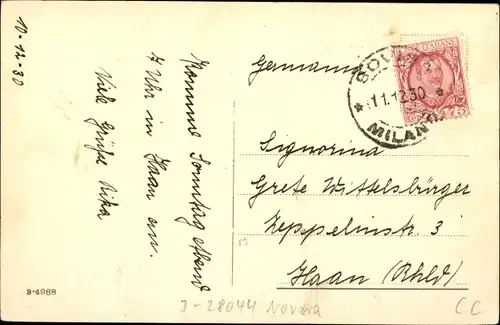 10-12-30
Komme Sonntag Abend
7 Uhr in Haan an.
Viele Grüße Nika
3-4968
Germania
BOV
11.12.30
MILANO
Signorina
Grete Wittelsbürger
Zeppelinstr 3
Haan (Rhld)
19
J-28044 Novara
CC